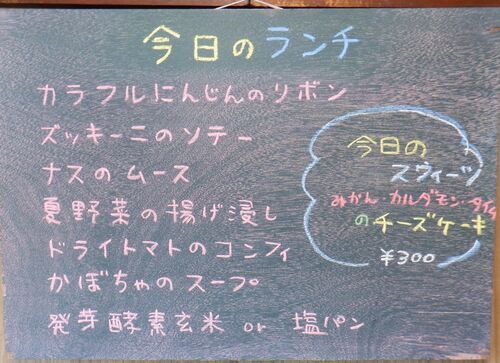 今日のランチ
カラフルにんじんのリボン
ズッキーニのソテー
ナスのムース
夏野菜の揚げ浸し
ドライトマトのコンフィ
かぼちゃのスープ
発芽酵素玄米 or 塩パン
今日の
スウィーツ
みかん・カルダモン・タイム
のチーズケーキ
¥300